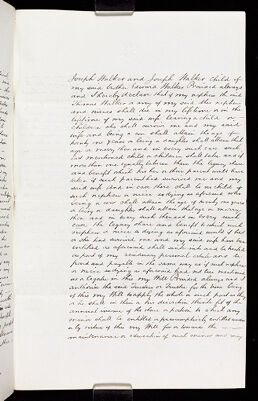 Joseph Walker and Joseph Walker child of
my said brother Edward Walker Provided always
and I hereby declare that if my nephew the said
Thomas Walker or any of my said other nephews
and nieces shall die in my lifetime or in the
lifetime of my said wife leaving a child or
children who shall survive me and my said
wife and being a son shall attain the age of
twenty one years or being a daughter shall attain that
age or marry then and in every such case such
last mentioned child or children shall take and if
more than one equally between them the legacy share
and benefit which his her or their parent would have
taken if such parent had survived me and my
said wife And in case there shall be no child of
such nephew or niece so dying as aforesaid who
being a son shall attain the age of twenty one years
or being a daughter shall attain that age or marry
then and in every such case
the legacy share and benefit which such
nephew or niece so dying as aforesaid would if he
or she had survived me and my said wife have been
entitled as aforesaid shall sink into and
part of my residuary personal estate and be
paid and payable in the same way as if such nephew
or niece so dying as aforesaid had not been named
as a legatee in this my Will Provided always and I
authorise the said Trustees or Trustee for the time being
of this my Will to apply the whole or such part as they
or he shall in their or his discretion think fit of the
annual income of the share or portion to which any
minor shall be entitled or presumptively entitled under
or by virtue of this my Will for or towards the
maintenance or education of such minor and my